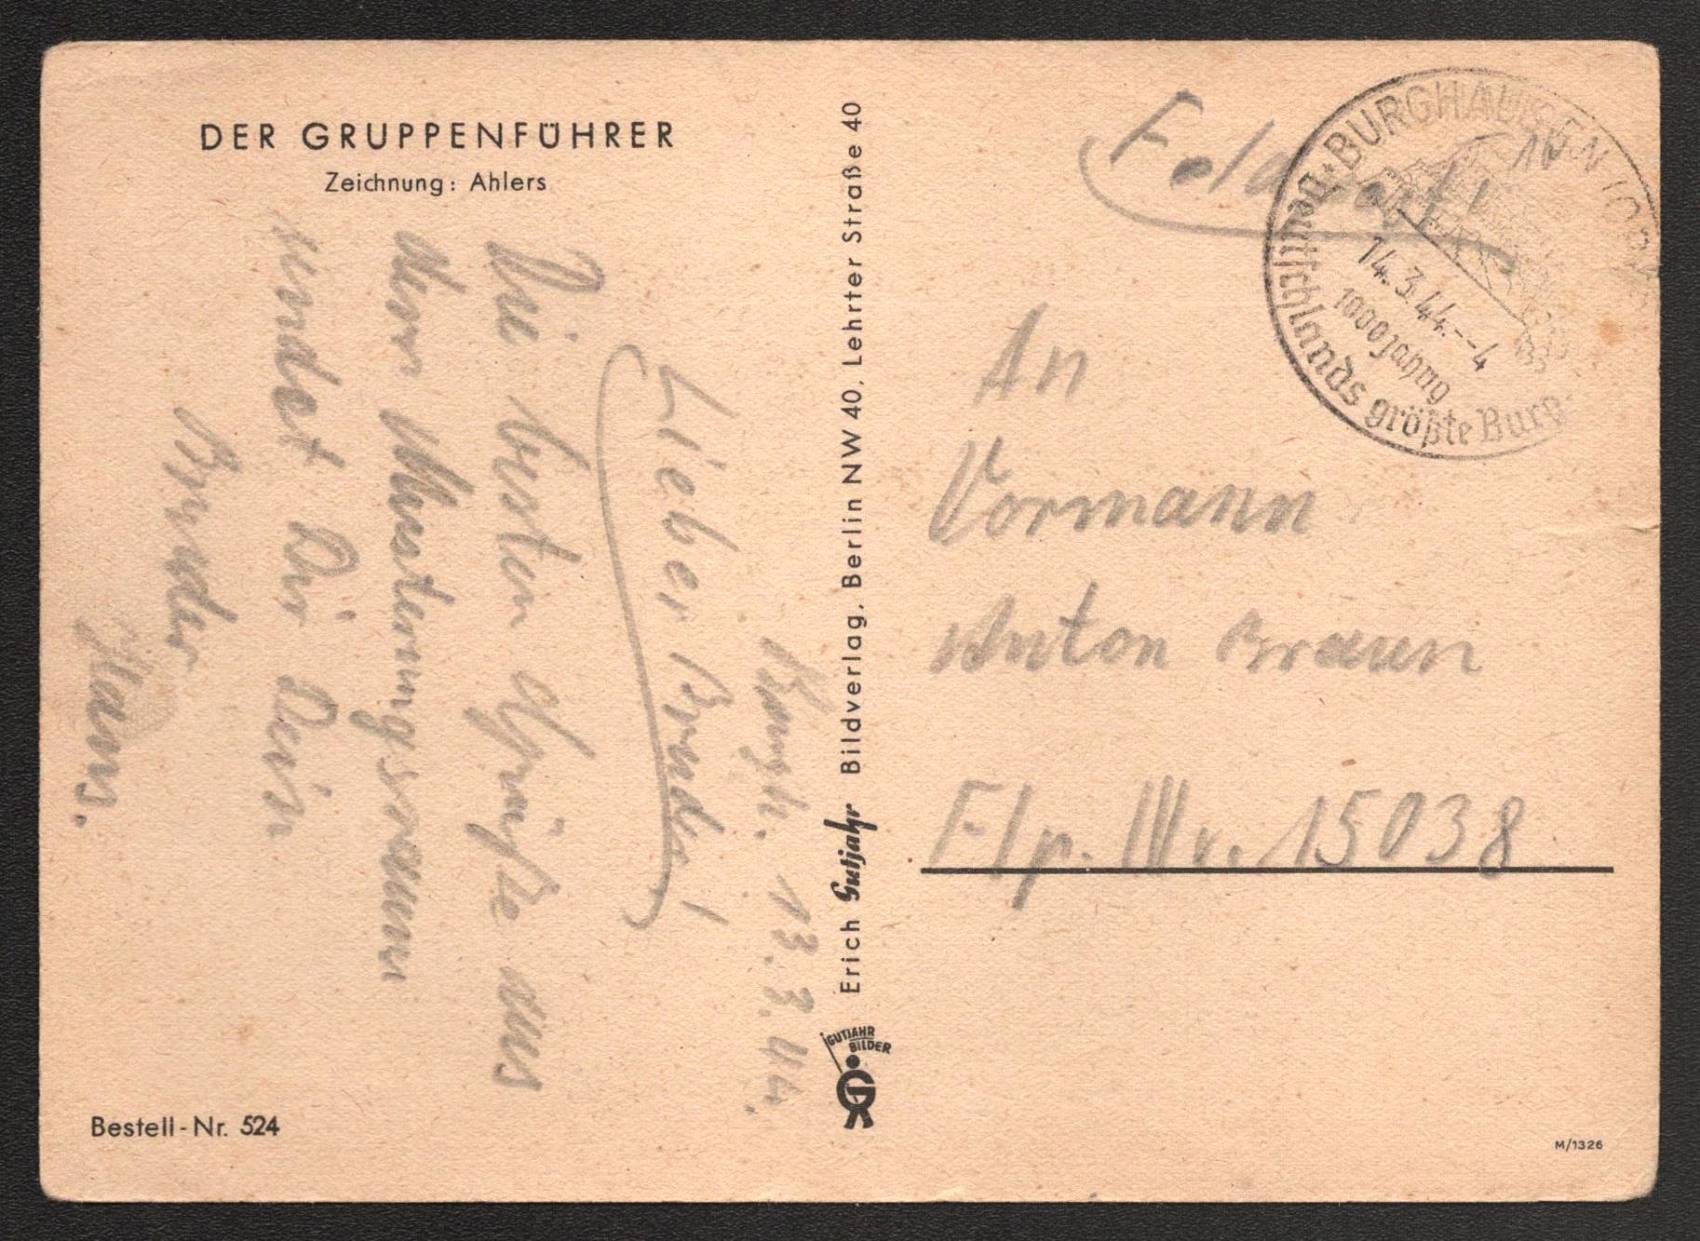 DER GRUPPENFÜHRER
Zeichnung: Ahlers
Burgh. 13.3.44.
Lieber Bruder!
Die besten Grüße aus
der Musterung
sendet Dir Dein
Bruder
Hans.
Bestell-Nr. 524
Erich Gutjahr Bildverlag, Berlin NW 40, Lehrter Straße 40
GUTJAHR
BILDER
Feldpost
10
BURGHAUSEN (OB
14.3.44.--4
1000jährig
Deutschlands größte Burg
An
Vormann
Anton Braun
Flp. Nr. 15038
M/1326